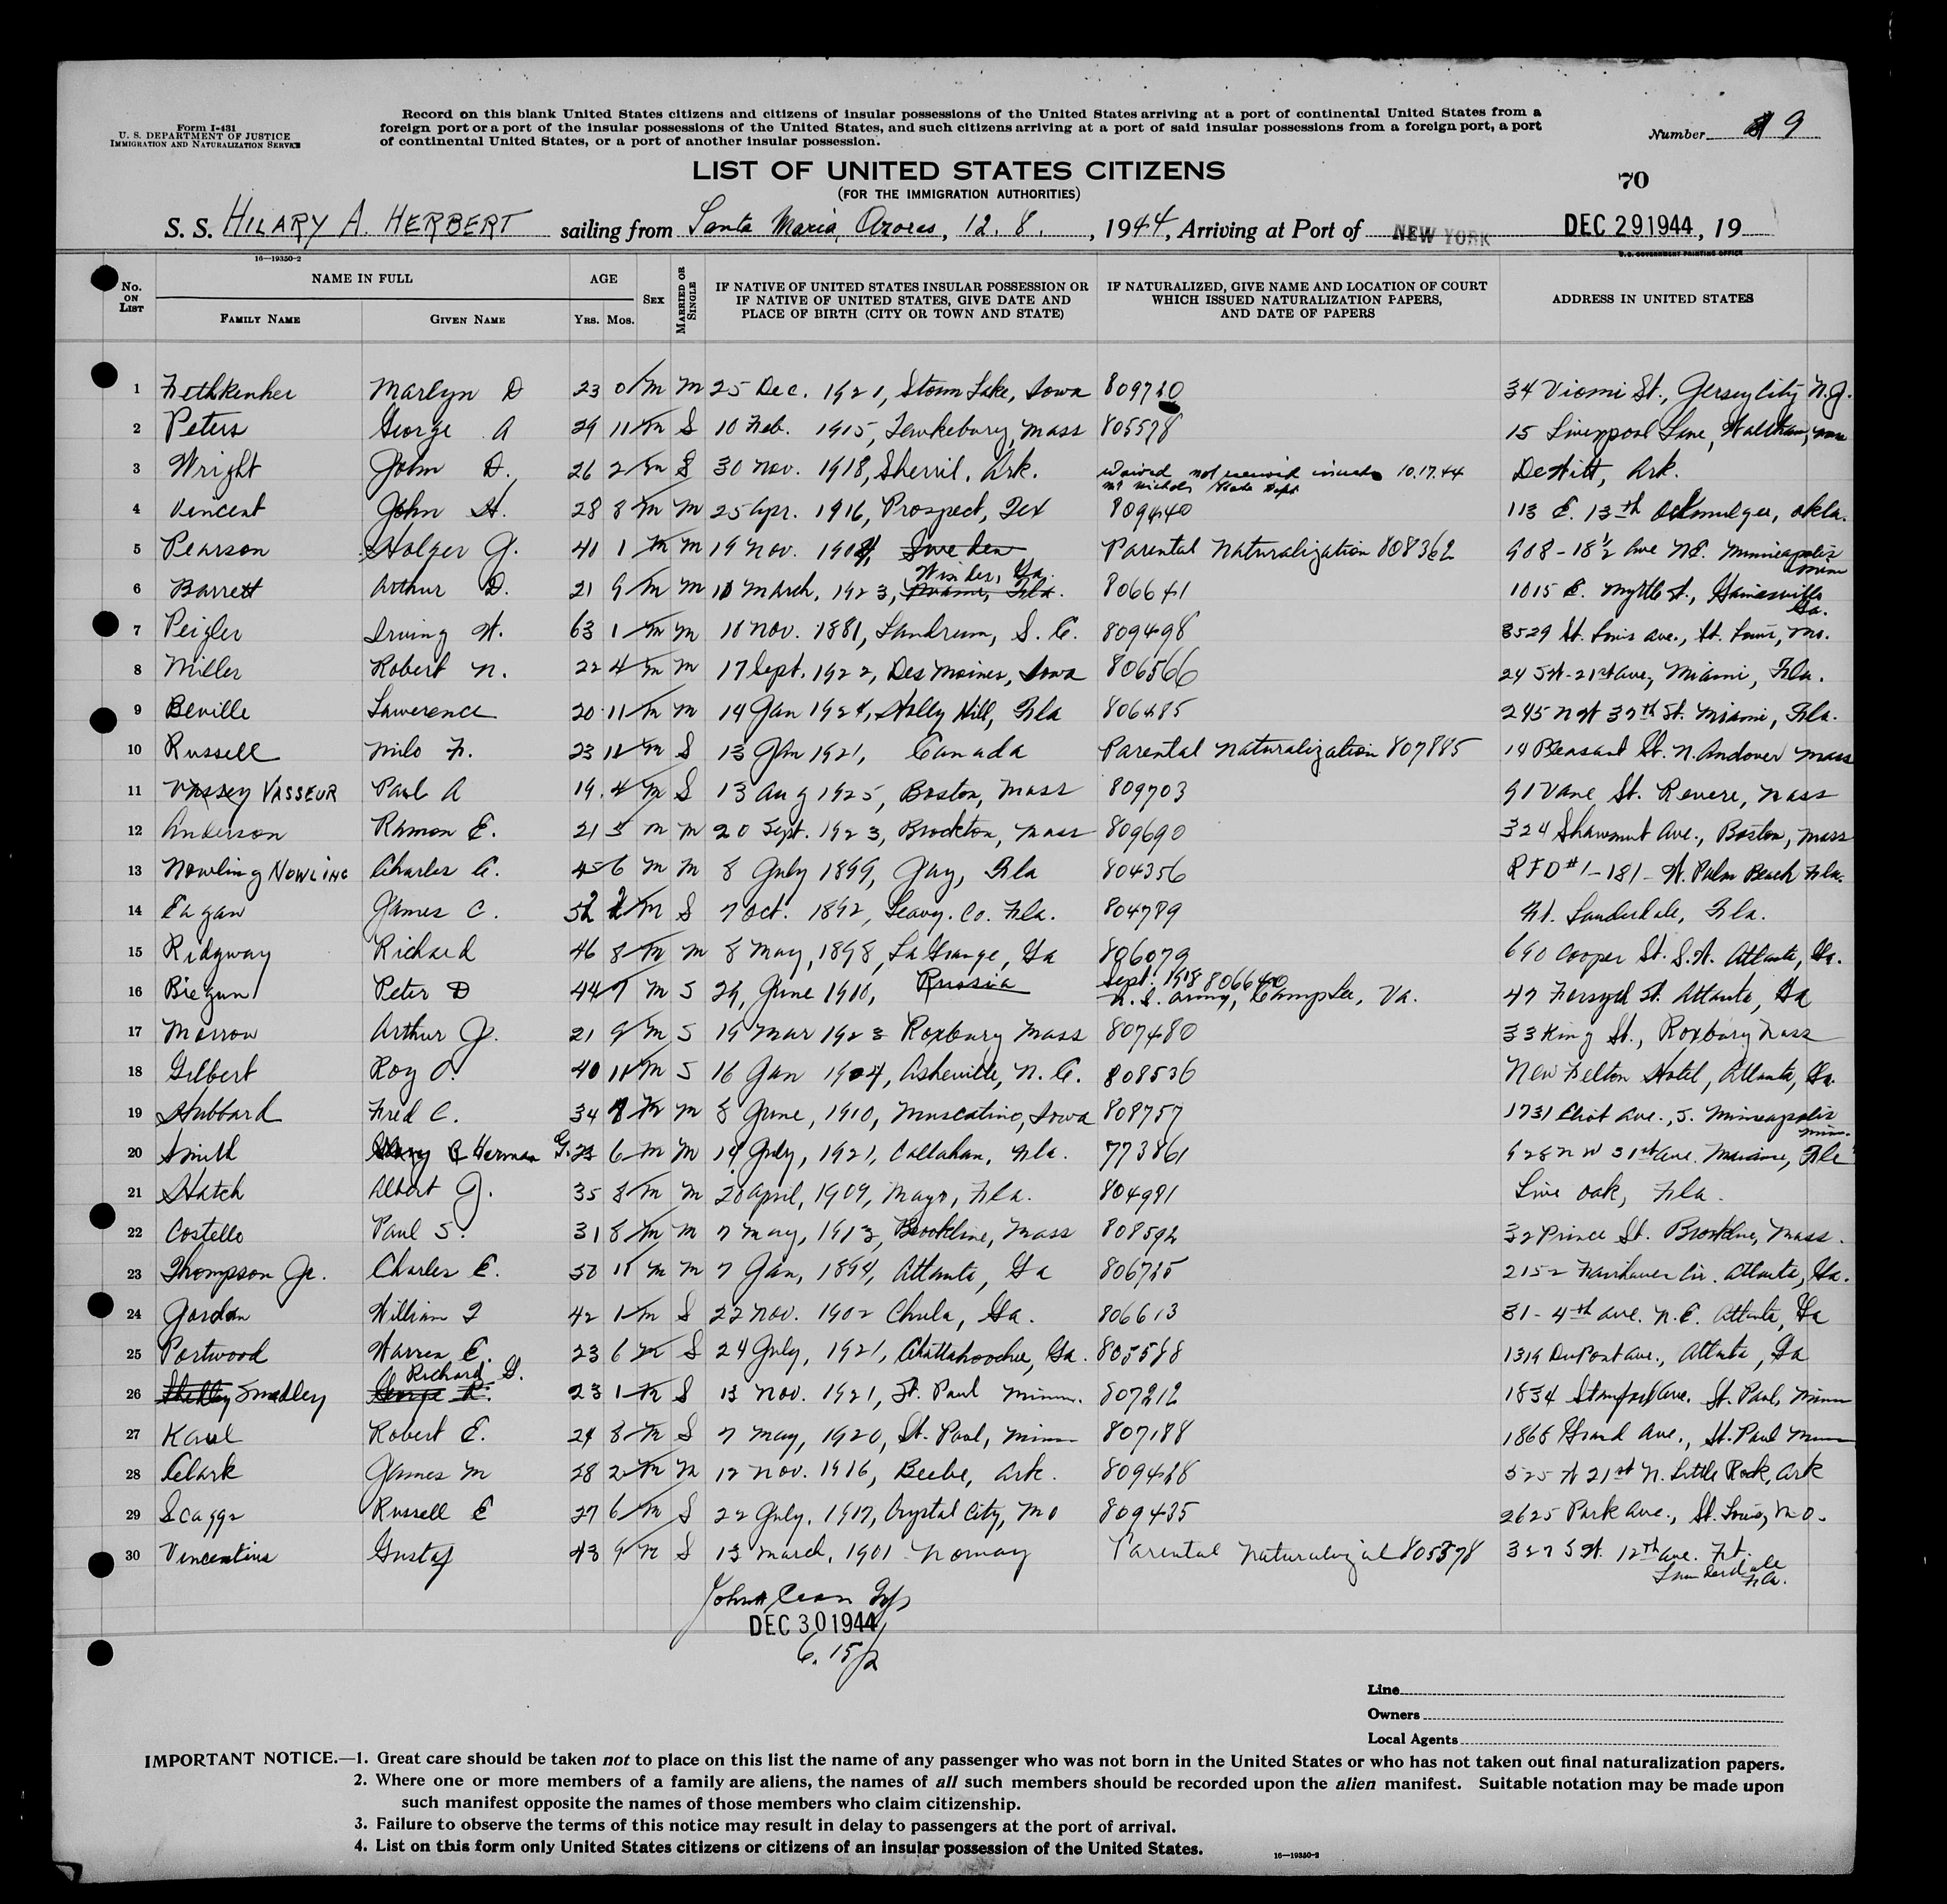 Form I-431
U. S. DEPARTMENT OF JUSTICE
IMMIGRATION AND NATURALIZATION SERVICE
Record on this blank United States citizens and citizens of insular possessions of the United States arriving at a port of continental United States from a
foreign port or a port of the insular possessions of the United States, and such citizens arriving at a port of said insular possessions from a foreign port, a port
of continental United States, or a port of another insular possession.
Number 9
LIST OF UNITED STATES CITIZENS
(FOR THE IMMIGRATION AUTHORITIES)
70
S. S. HILARY A. HERBERT sailing from Santa Maria, Azores, 12. 8. , 1944, Arriving at Port of NEW YORK DEC 29 1944, 19
16—19350-2
U.S. GOVERNMENT PRINTING OFFICE
No. ON LIST NAME IN FULL AGE SEX MARRIED OR SINGLE IF NATIVE OF UNITED STATES INSULAR POSSESSION OR IF NATIVE OF UNITED STATES, GIVE DATE AND PLACE OF BIRTH (CITY OR TOWN AND STATE) IF NATURALIZED, GIVE NAME AND LOCATION OF COURT WHICH ISSUED NATURALIZATION PAPERS, AND DATE OF PAPERS ADDRESS IN UNITED STATES
FAMILY NAME GIVEN NAME YRS. MOS.
1 Fethkenher Marlyn D 23 0 M M 25 Dec. 1921, Storm Lake, Iowa 809720 34 St., Jersey City N.J.
2 Peters George A 29 11 M S 10 Feb. 1915, Tewkebury, Mass 805578 15 Liverpool Lane, Waltham, Mass
3 Wright John D. 26 2 M S 30 Nov. 1918, Sherril, Ark. waived not 10.17.44 DeWitt, Ark.
Mr Nichols State Dept
4 Vincent John H. 28 8 M M 25 Apr. 1916, Prospect, Tex 809440 113 E. 13th Okmulgee, Okla.
5 Pearson Holger G. 41 1 M M 19 Nov. 1904, Sweden Parental Naturalization 808362 908-18½ Ave NE. Minneapolis Minn
6 Barrett Arthur D. 21 9 M M March, 1923, Miami, Fla. Winder, Ga. 806641 1015 E. Myrtle St., Gainesville Ga.
7 Peigler Irving W. 63 1 M M 10 Nov. 1881, Landrum, S. C. 809498 3529 St. Louis Ave., St. Louis, Mo.
8 Miller Robert N. 22 4 M M 17 Sept. 1922, Des Moines, Iowa 806566 24 SW-21st Ave, Miami, Fla.
9 Beville Lawerence 20 11 M M 14 Jan 1924, Holly Hill, Fla 806485 245 NW 37th St. Miami, Fla.
10 Russell Milo F. 23 11 M S 13 Jan 1921, Canada Parental Naturalization 807885 14 Pleasant St. N. Andover Mass
11 Vassey VASSEUR Paul A 19 4 M S 13 Aug 1925, Boston, Mass 809703 91 Vane St. Revere, Mass
12 Anderson Ramon E. 21 3 M M 20 Sept. 1923, Brockton, Mass 809690 324 Shawmut Ave., Boston, Mass
13 Nowling NOWLING Charles C. 45 6 M M 8 July 1899, Jay, Fla 804356 RFD #1-181- W. Palm Beach Fla.
14 Eagan James C. 52 2 M S 7 Oct. 1892, Leavy. Co. Fla. 804789 Ft. Lauderdale, Fla.
15 Ridgway Richard 46 8 M M 8 May, 1898, LaGrange, Ga 806079 690 Cooper St. S.W. Atlanta, Ga.
16 Biegun Peter D 44 M S 29, June 1910, Russia Sept. 1918 806640 47 Forsyth St. Atlanta, Ga
U.S. Army, Camp Lee, Va.
17 Morrow Arthur J. 21 9 M S 19 Mar 1923 Roxbury Mass 807480 33 King St., Roxbury Mass
18 Gilbert Roy O. 40 11 M S 16 Jan 1904, Asheville, N. C. 808536 New Felton Hotel, Atlanta, Ga.
19 Hubbard Fred C. 34 M M 8 June, 1910, Muscatino, Iowa 808757 1731 Eliot Ave., S. Minneapolis Minn.
20 Smith Herman G. 23 6 M M 14 July, 1921, Callahan, Fla. 773861 928 NW 31st Ave. Miami, Fla
21 Hatch Albert J. 35 8 M M 20 April, 1909, Mayo, Fla. 804991 Live Oak, Fla.
22 Costello Paul S. 31 8 M M 7 May, 1913, Brookline, Mass 808592 32 Prince St. Brookline, Mass.
23 Thompson Jr. Charles E. 50 11 M M 7 Jan, 1894, Atlanta, Ga 806725 2152 Fairhaven Cir. Atlanta, Ga.
24 Jordan William T 42 1 M S 22 Nov. 1902 Chula, Ga. 806613 31-4th Ave. N.E. Atlanta, Ga
25 Portwood Warren E. 23 6 M S 24 July, 1921, Chattahoochee, Ga. 805588 1319 DuPont Ave., Atlanta, Ga
26 Shelley Smedley George R. Richard G. 23 1 M S 13 Nov. 1921, St. Paul Minn. 807212 1834 Stanford Ave. St. Paul, Minn
27 Kaul Robert E. 24 8 M S 7 May, 1920, St. Paul, Minn 807188 1868 Grand Ave., St. Paul Minn
28 Clark James M 28 2 M M 12 Nov. 1916, Beebe, Ark. 809428 325 W 21st N. Little Rock, Ark
29 Scaggs Russell E 27 6 M S 22 July, 1917, Crystal City, Mo 809435 2625 Park Ave., St. Louis, Mo.
30 Vincentius Gustaf 43 9 M S 13 March, 1901 Norway Parental 805378 327 SW. 12th Ave. Ft. Lauderdale Fla.
DEC 30 1944
6.15/2
Line
Owners
Local Agents
IMPORTANT NOTICE.—1. Great care should be taken not to place on this list the name of any passenger who was not born in the United States or who has not taken out final naturalization papers.
2. Where one or more members of a family are aliens, the names of all such members should be recorded upon the alien manifest. Suitable notation may be made upon
such manifest opposite the names of those members who claim citizenship.
3. Failure to observe the terms of this notice may result in delay to passengers at the port of arrival.
4. List on this form only United States citizens or citizens of an insular possession of the United States.
16—19350-2